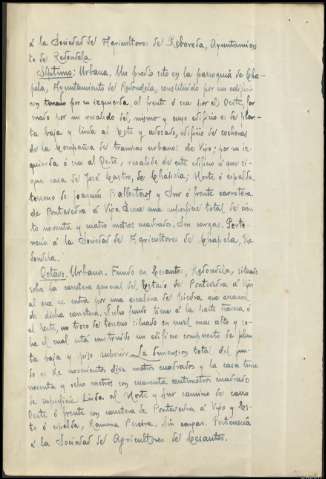 á la Sociedad de Agricultores de Reboreda, Ayuntamien
to de Redondela
Séptimo: Urbana. Un predio sito en la parroquia de Cha
pela, Ayuntamiento de Redondela, constituido por un edifi
cio por su izquierda al frente ó sea por el Oeste, for
mado por un recaldo del mismo y cuyo edificio es de plan
ta baja y linda al Este y adosado, edificio de cocheras
de la Compañía de tranvías urbanos de Vigo; por su iz
quierda ó sea al Oeste, resalido de este edificio á ano si
que casa de José Castro, de Chapela; Norte ó espalda
terreno de Joaquín Ballesteros y Sur ó frente carretera
de Pontevedra á Vigo. Ocupa una superficie total de cien
to noventa y cuatro metros cuadrados. Sin cargas. Perte
necía á la Sociedad de Agricultores de Chapela, Re
dondela.
Octavo. Urbana. Fundo en Cesantes, Redondela, situado
sobre la carretera general del Estado de Pontevedra á Vigo
al que se entra por una escalera de piedra que arranca
de dicha carretera. Dicho fundo tiene á la parte trasera, ó
al Este, un trozo de terreno situado en nivel más alto y so
bre el cual está construido un edificio compuesto de plan
ta baja y piso superior. La dimensión total del fun
do es de novecientos doce metros cuadrados y la casa tiene
noventa y ocho metros con cuarenta centímetros cuadrados
de superficie. Linda al Norte y Sur camino de carro
Oeste ó frente con carretera de Pontevedra á Vigo y Es
te ó espalda, Ramona Pereira. Sin cargas. Pertenecía
á la Sociedad de Agricultores de Cesantes.